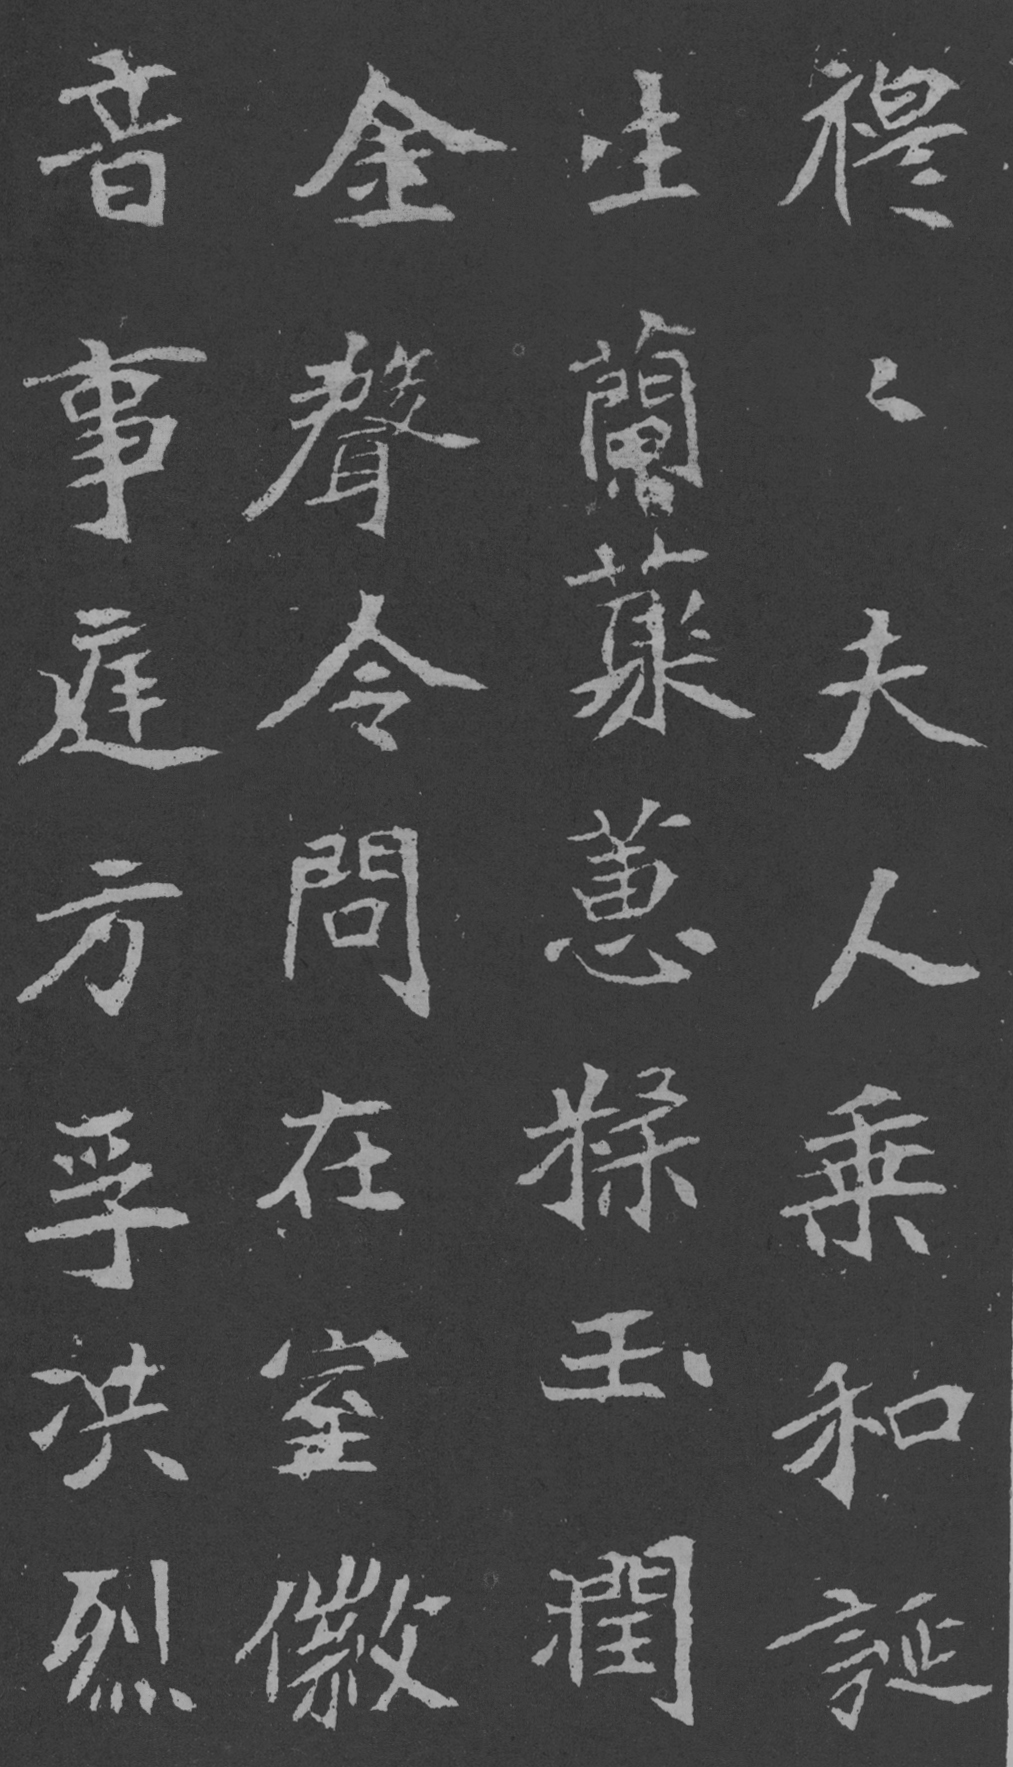 穆〻夫人乘和誕
生蘭蕙糅玉潤
金聲令問在室徽
音事庭方孚洪烈